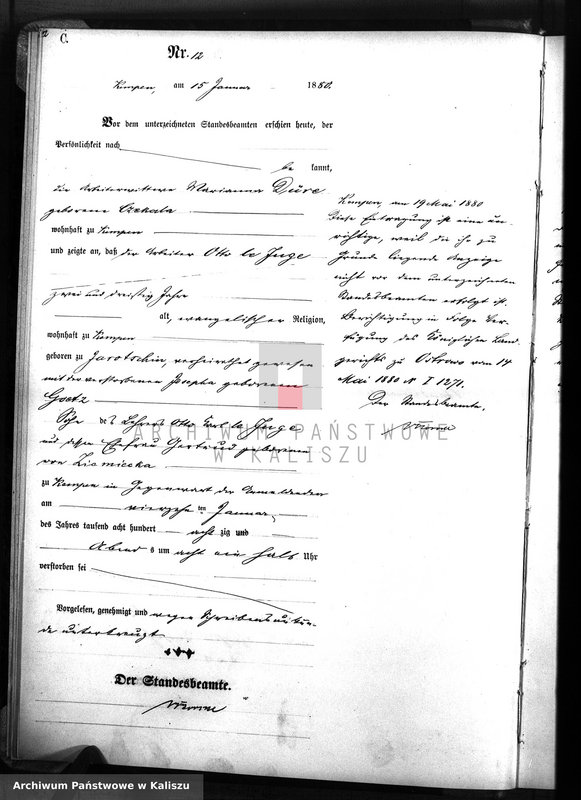 2
C.
Nr. 12
Kempen, am 15 Januar 1880.
Vor dem unterzeichneten Standesbeamten erschien heute, der
Persönlichkeit nach
be kannt,
die Arbeiterwittwe Marianna Düre
geborene Czekala
wohnhaft zu Kempen
und zeigte an, daß der Arbeiter Otto le Juge
zwei und dreißig Jahre
alt, evangelischer Religion,
wohnhaft zu Kempen
geboren zu Jarotschin, verheirathet gewesen
mit der verstorbenen Josepha geborenen
Goetz
Sohn des Lehrers Otto Karl le Juge
und dessen Ehefrau Gertrud geborenen
von Ziemiecka
zu Kempen in Gegenwart der Anmeldenden
am vierzehn ten Januar
des Jahres tausend acht hundert acht zig und
Abends um acht ein halb Uhr
verstorben sei
Vorgelesen, genehmigt und wegen Schreibensunkun-
de unterkreuzt
+++
Der Standesbeamte.
Kempen, am 19 Mai 1880
Diese Eintragung ist eine un-
richtige, weil die ihr zu
Grunde liegende Anzeige
nicht vor dem unterzeichneten
Standesbeamten erfolgt ist.
Berichtigung in Folge Ver-
fügung des Königlichen Land
gerichts zu Ostrowo vom 14
Mai 1880 N I 1271.
Der Standesbeamte.
ARCHIWUM PAŃSTWOWE
W KALISZU
Archiwum Państwowe w Kaliszu